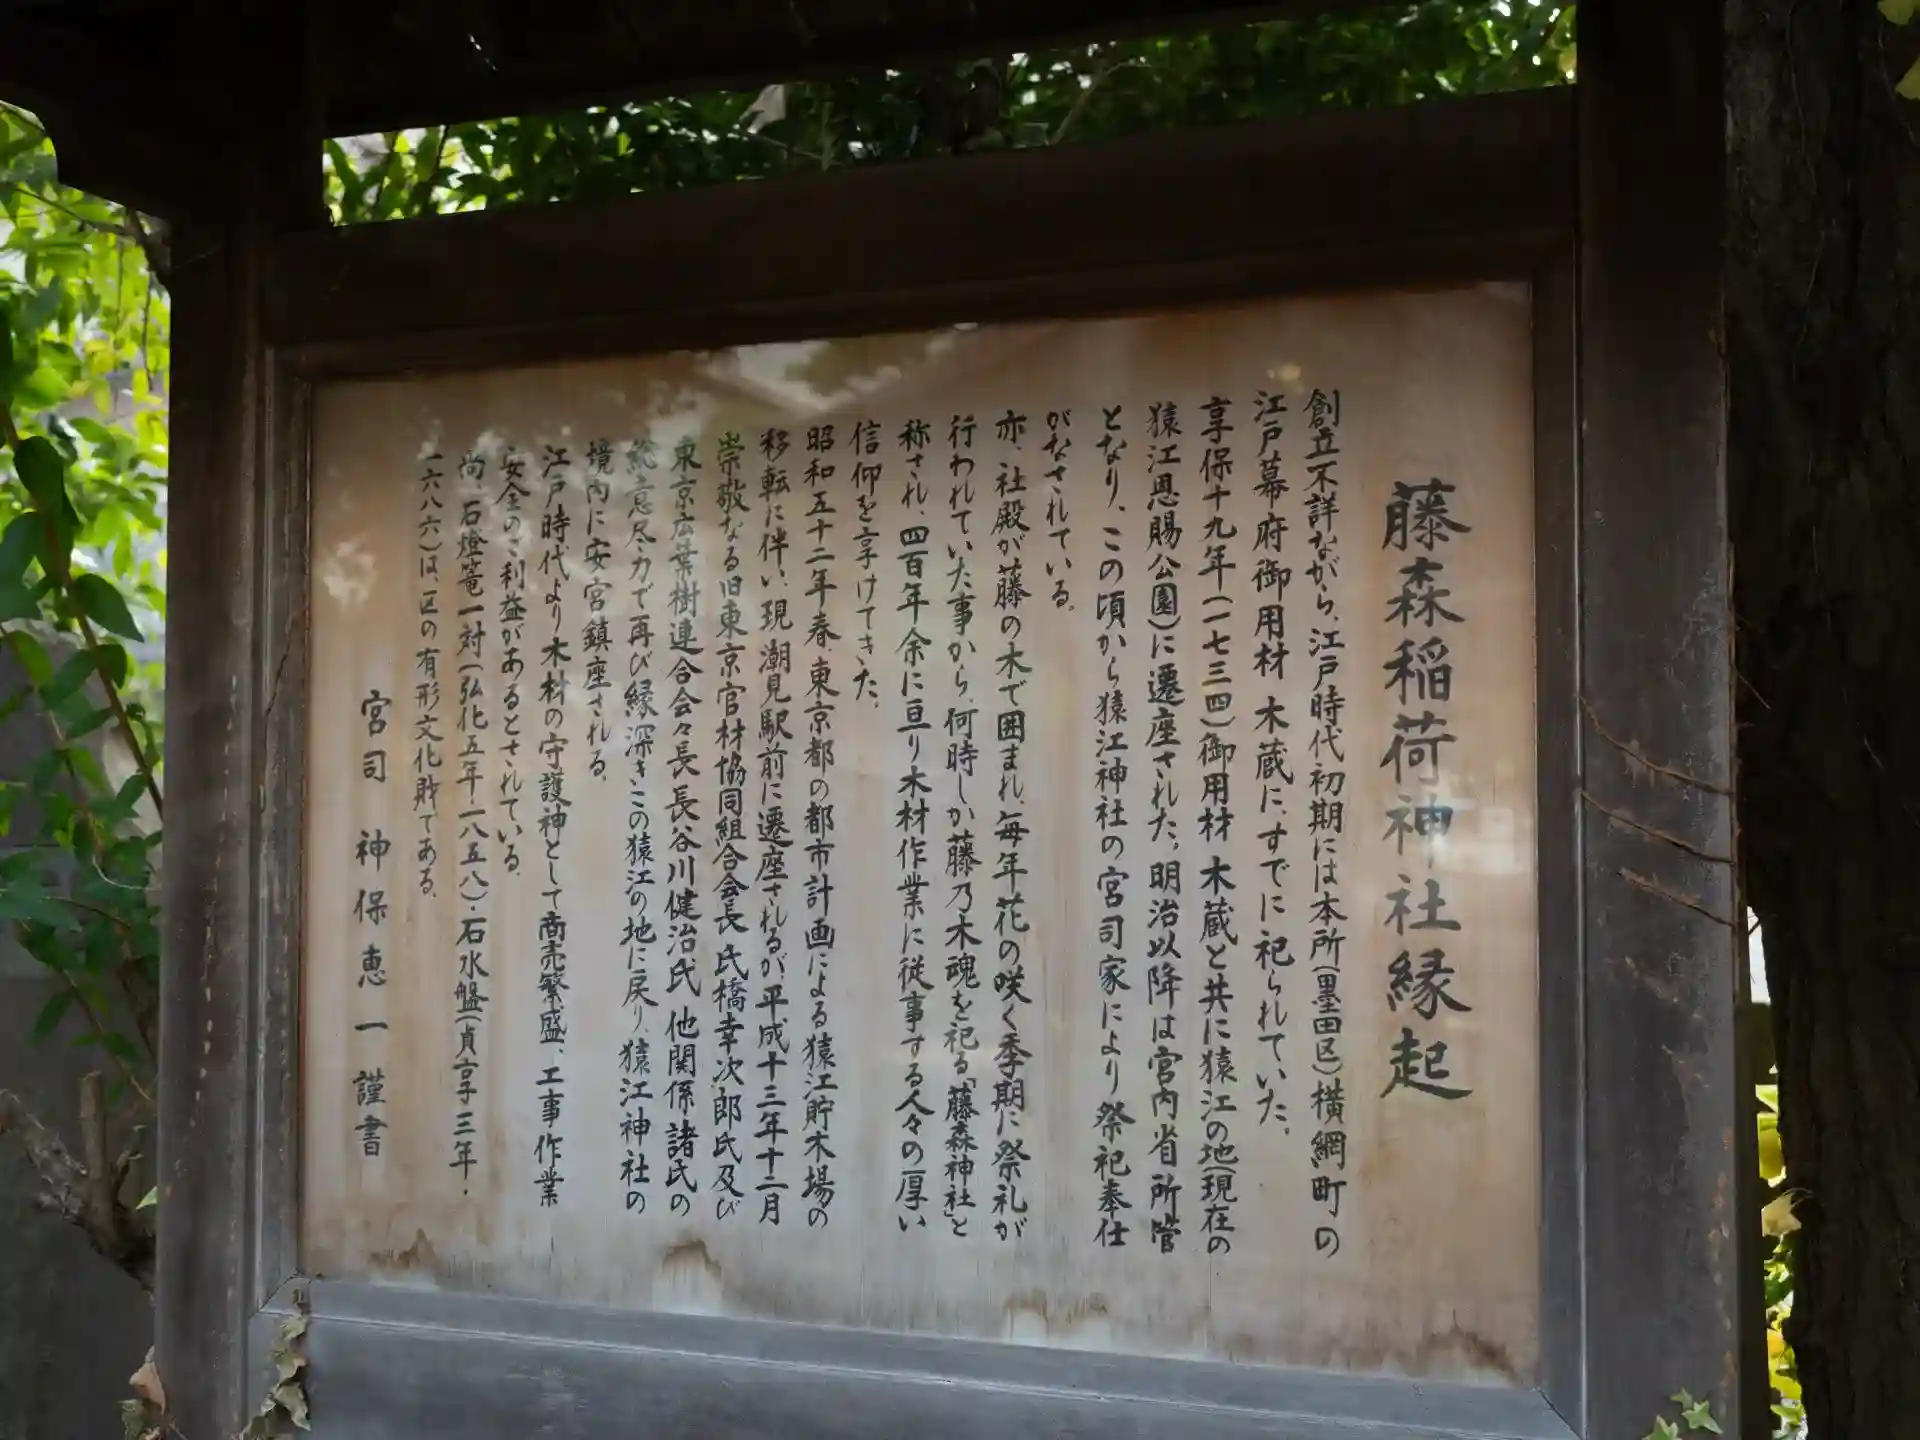 藤森稲荷神社縁起
創立不詳ながら、江戸時代初期には本所(墨田区)横網町の
江戸幕府御用材木蔵に、すでに祀られていた。
享保十九年(一七三四)御用材木蔵と共に猿江の地(現在の
猿江恩賜公園)に遷座された。明治以降は宮内省所管
となり、この頃から猿江神社の宮司家により祭祀奉仕
がなされている。
亦、社殿が藤の木で囲まれ、毎年花の咲く季期に祭礼が
行われていた事から、何時しか藤乃木魂を祀る「藤森神社」と
称され、四百年余に亘り木材作業に従事する人々の厚い
信仰を享けてきた。
昭和五十二年春、東京都の都市計画による猿江貯木場の
移転に伴い、現潮見駅前に遷座されるが、平成十三年十二月
崇敬なる旧東京官材協同組合会長氏橋幸次郎氏及び
東京広葉樹連合会々長長谷川健治氏他関係諸氏の
総意尽力で再び縁深きこの猿江の地に戻り、猿江神社の
境内に安宮鎮座される。
江戸時代より木材の守護神として商売繁盛、工事作業
安全のご利益があるとされている。
尚、石燈篭一対(弘化五年・一八五八)・石水盤(貞享三年・
一六八六)は、区の有形文化財である。
宮司 神保恵一 謹書